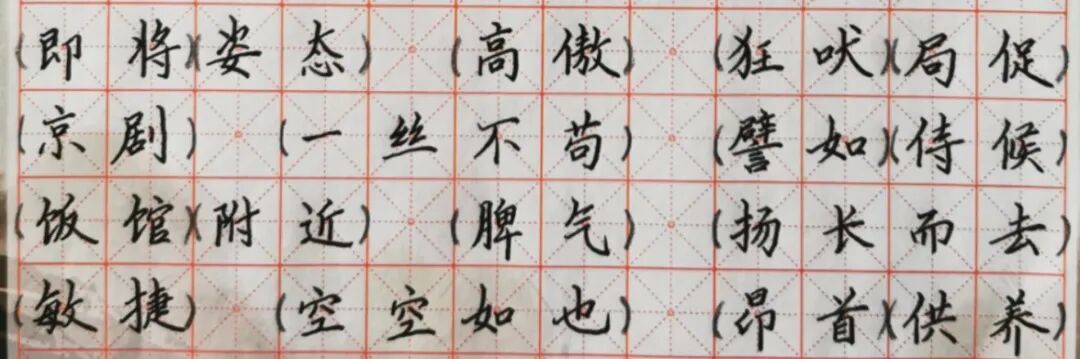 (即将)(姿态)(高傲)(狂吠)(局促)
(京剧)(一丝不苟)(譬如)(侍候)
(饭馆)(附近)(脾气)(扬长而去)
(敏捷)(空空如也)(昂首)(供养)